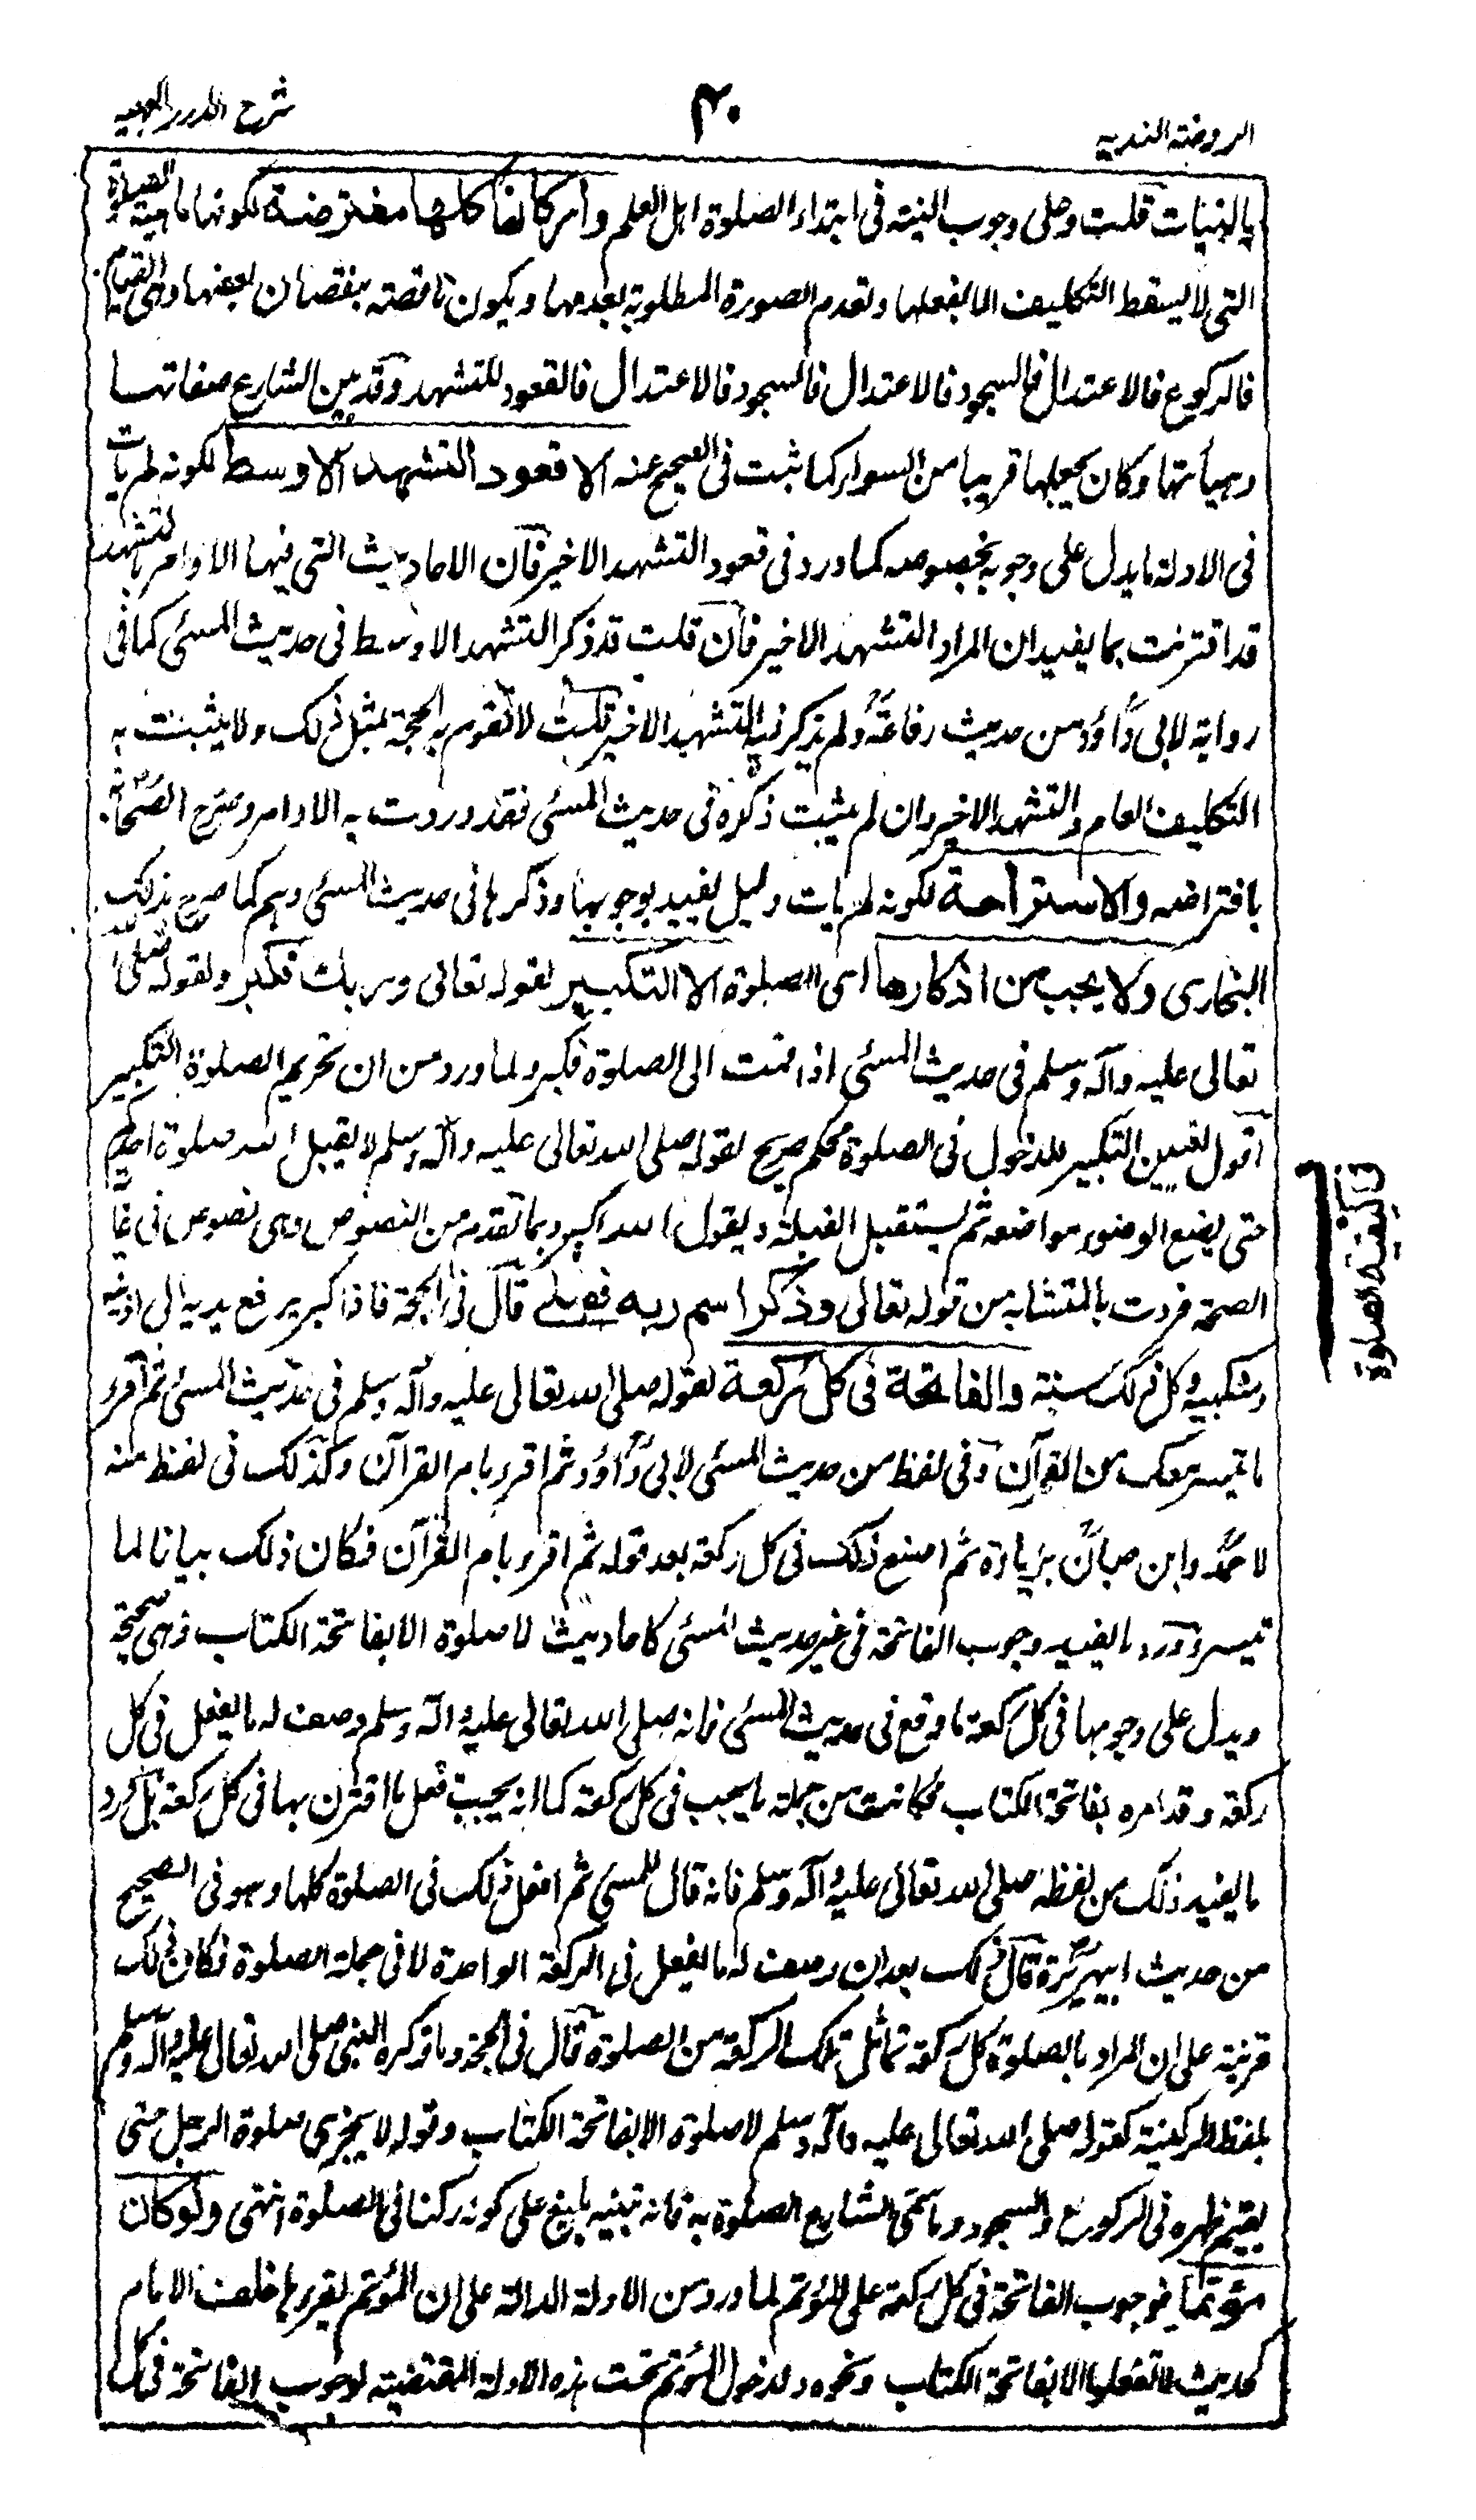 الروضة الندية
٣٠
شرح الدرر البهية
بالنيات قلت وعلى وجوب النية فى ابتداء الصلوة اهل العلم واركانها كلها مفترضة لكونها ماهية الصلوة
التى لا يسقط التكليف الا بفعلها وتعدم الصورة المطلوبة بعدمها ويكون ناقصة بنقصان بعضها وهى القيام
فالركوع فالاعتدال فالسجود فالاعتدال فالسجود فالاعتدال فالقعود للتشهد وقد بين الشارع صفاتها
وهيأتها وكان يجعلها قريبا من السواء كما ثبت فى الصحيح عنه الا قعود التشهد الاوسط لكونه لم يأت
فى الادلة ما يدل على وجوبه بخصوصه كما ورد فى قعود التشهد الاخير فان الاحاديث التى فيها الاوامر بالتشهد
قد اقترنت بما يفيد ان المراد التشهد الاخير فان قلت قد ذكر التشهد الاوسط فى حديث المسئ كما فى
رواية لابى داؤد من حديث رفاعة ولم يذكر فيه التشهد الاخير قلت لا تقوم به الحجة بمثل ذلك ولا يثبت به
التكليف العام والتشهد الاخير وان لم يثبت ذكره فى حديث المسئ فقد وردت به الاوامر وصرح الصحابة
بافتراضه والاستراحة لكونه لم يات دليل يفيد بوجوبها وذكرها فى حديث المسئ وهم كما صرح بذلك
البخارى ولا يجب من اذكارها اى الصلوة الا التكبير لقوله تعالى وربك فكبر ولقوله صلى الله
تعالى عليه وآله وسلم فى حديث المسئ اذا قمت الى الصلوة فكبر ولما ورد من ان تحريم الصلوة التكبير
اقول تعيين التكبير للدخول فى الصلوة محكم صريح لقوله صلى الله تعالى عليه وآله وسلم لا يقبل الله صلوة احدكم
حتى يضع الوضوء مواضعه ثم يستقبل القبلة ويقول الله اكبر وبما تقدم من النصوص وهى نصوص فى غاية
الصحة فردت بالمتشابه من قوله تعالى وذكر اسم ربه فصلى قال فى الحجة فاذا كبر يرفع يديه الى اذنيه
ومنكبيه وكل ذلك سنة والفاتحة فى كل ركعة لقوله صلى الله تعالى عليه وآله وسلم فى حديث المسئ ثم اقرء
ما تيسر معك من القرآن وفى لفظ من حديث المسئ لابى داؤد ثم اقرء بام القرآن وكذلك فى لفظ منه
لاحمد وابن حبان بزيادة ثم اصنع ذلك فى كل ركعة بعد قوله ثم اقرء بام القرآن فكان ذلك بيانا لما
تيسر وورد ما يفيد وجوب الفاتحة فى غير حديث المسئ كاحاديث لا صلوة الا بفاتحة الكتاب وهى صحيحة
ويدل على وجوبها فى كل ركعة ما وقع فى حديث المسئ فانه صلى الله تعالى عليه وآله وسلم وصف له ما يفعل فى كل
ركعة وقد امره بفاتحة الكتاب فكانت من جملة ما يجب فى كل ركعة كما انه يجب فعل ما اقترن بها فى كل ركعة بل ورد
ما يفيد ذلك من لفظه صلى الله تعالى عليه وآله وسلم فانه قال للمسئ ثم افعل ذلك فى الصلوة كلها وهو فى الصحيح
من حديث ابيهريرة قال ذلك بعد ان وصف له ما يفعل فى الركعة الواحدة لا فى جملة الصلوة فكان ذلك
قرينة على ان المراد بالصلوة كل ركعة تماثل تلك الركعة من الصلوة قال فى الحجة وما ذكره النبى صلى الله تعالى عليه وآله وسلم
بلفظ الركنية كقوله صلى الله تعالى عليه وآله وسلم لا صلوة الا بفاتحة الكتاب وقوله لا يجزى صلوة الرجل حتى
يقيم ظهره فى الركوع والسجود وما سمى الشارع الصلوة به فانه تنبيه بليغ على كونه ركنا فى الصلوة انتهى ولو كان
مؤتما فوجوب الفاتحة فى كل ركعة على المؤتم لما ورد من الادلة الدالة على ان المؤتم يقرءها خلف الامام
كحديث لا تفعلوا الا بفاتحة الكتاب ونحوه ولدخول المؤتم تحت هذه الادلة المقتضية لوجوب الفاتحة فى كل